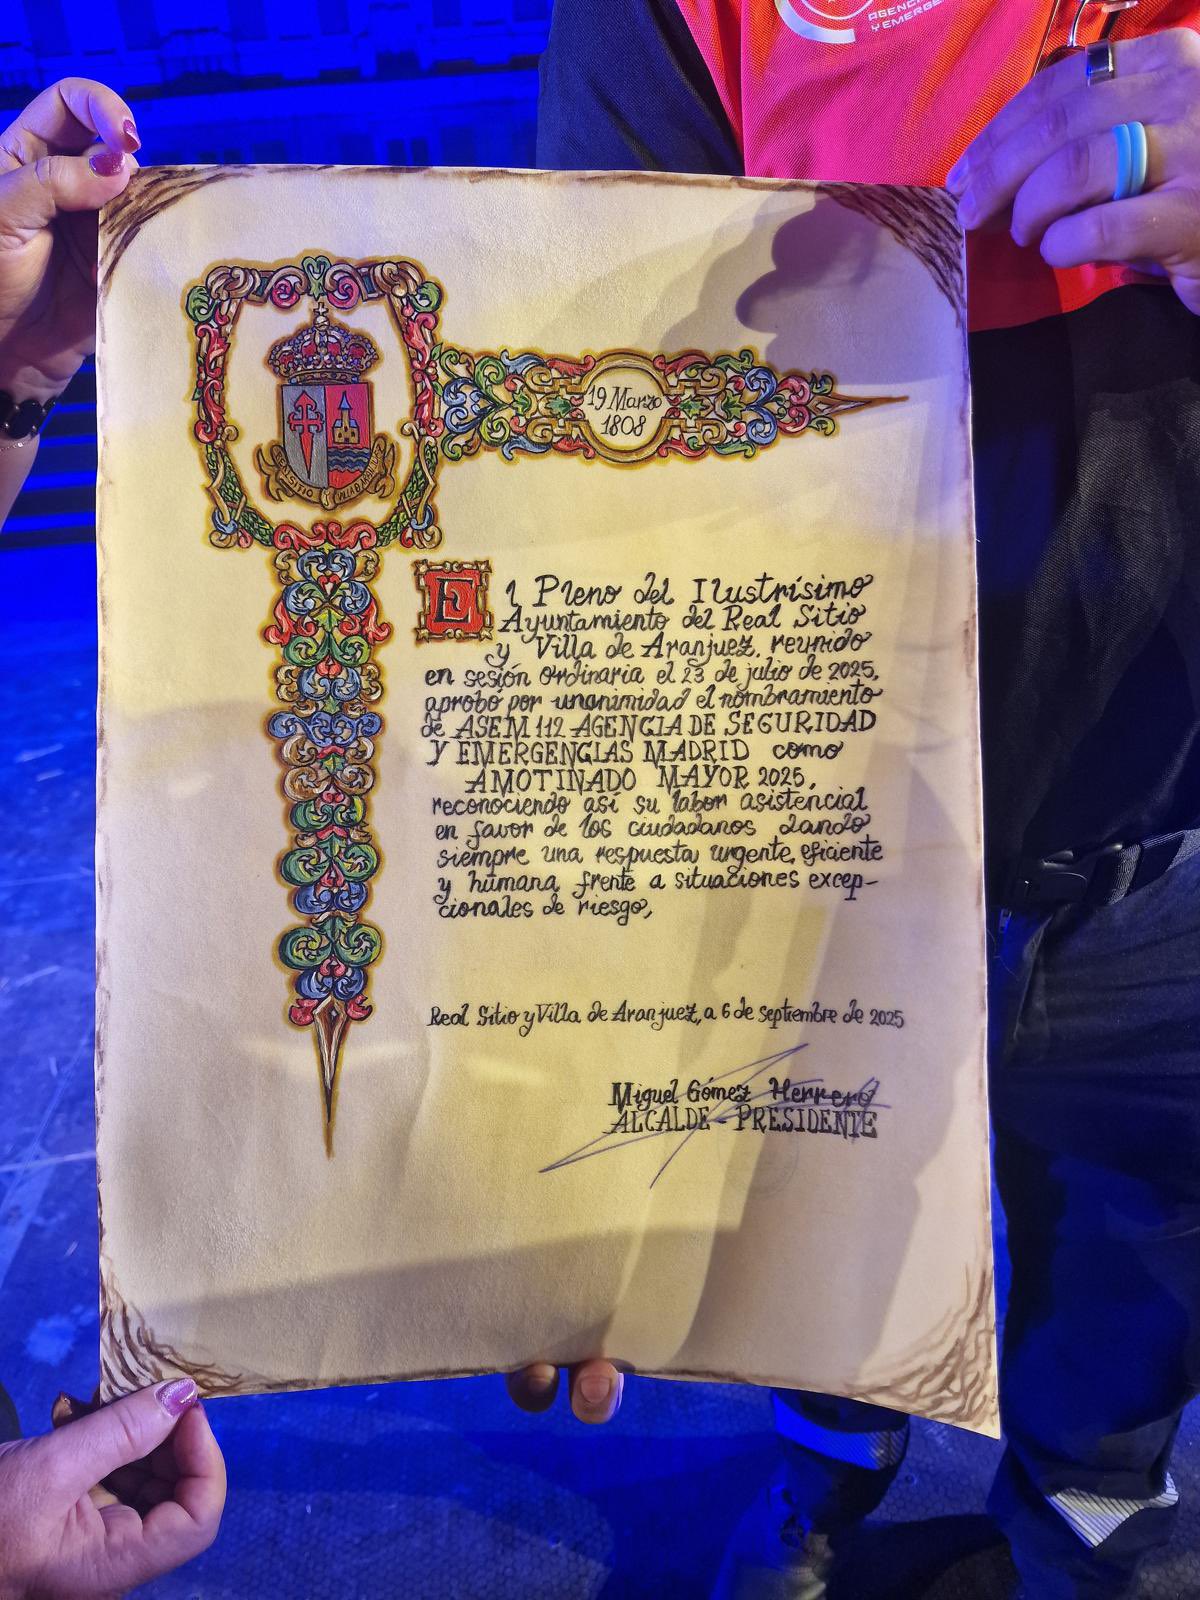 AGENCIA
Y EMERGEN
19 Marzo
1808
REAL SITIO Y VILLA D ARANJUEZ
El Pleno del Ilustrísimo
Ayuntamiento del Real Sitio
y Villa de Aranjuez, reunido
en sesión ordinaria el 23 de julio de 2025,
aprobó por unanimidad el nombramiento
de ASEM 112 AGENCIA DE SEGURIDAD
Y EMERGENCIAS MADRID como
AMOTINADO MAYOR 2025,
reconociendo así su labor asistencial
en favor de los ciudadanos dando
siempre una respuesta urgente, eficiente
y humana frente a situaciones excep-
cionales de riesgo,
Real Sitio y Villa de Aranjuez, a 6 de septiembre de 2025
Miguel Gómez Herrero
ALCALDE - PRESIDENTE